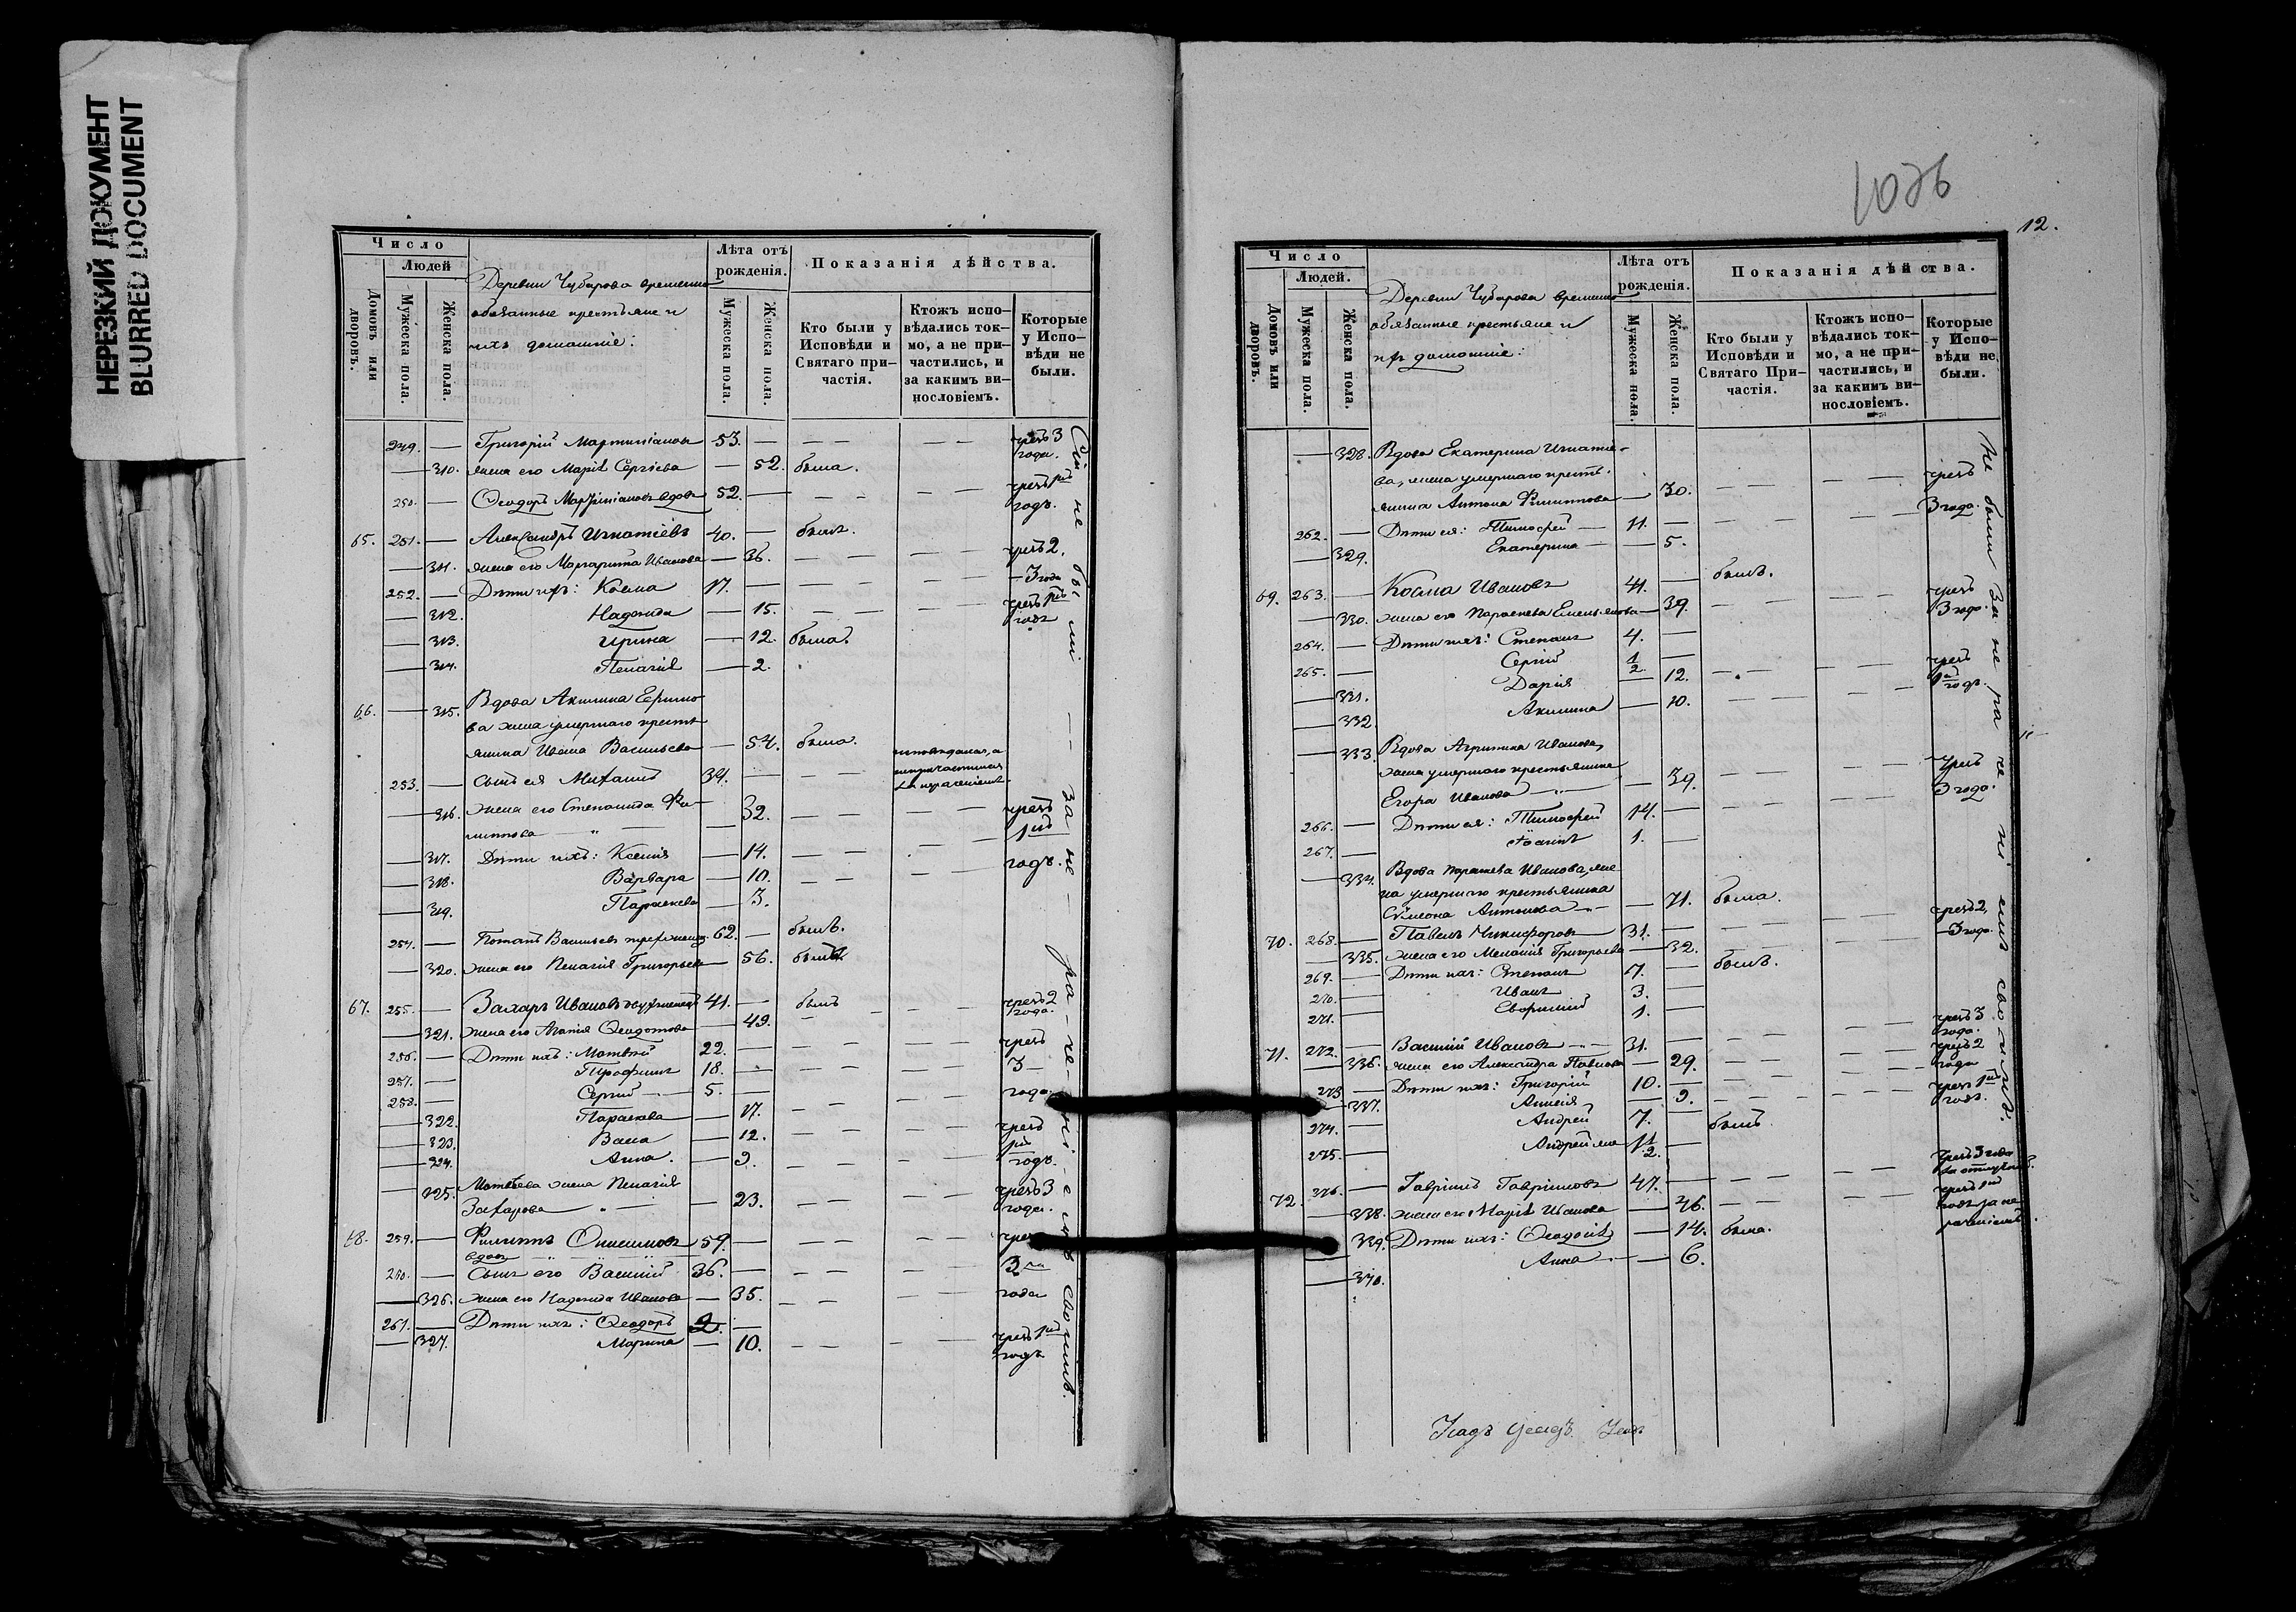 НЕРЕЗКИЙ ДОКУМЕНТ
BLURRED DOCUMENT
Число
Людей
Домовъ или дворовъ.
Мужеска пола.
Женска пола.
Деревни Чубарова временно
обязанные крестьяне и
ихъ домашніе:
Лѣта отъ рожденія.
Мужеска пола.
Женска пола.
Показанія дѣйства.
Кто были у Исповѣди и Святаго причастія.
Ктожъ исповѣдались токмо, а не причастились, и за какимъ винословіемъ.
Которые у Исповѣди не были.
249. — Григорій Мартиніановъ 53. — — — — — чрезъ 3 года.
— 310. жена его Марія Сергіева — 52. была.
250. — Ѳеодоръ Мартиніановъ вдовъ 52. — — — — чрезъ 1й годъ.
65. 251. — Александръ Игнатіевъ 40. — былъ.
— 311. жена его Маргарита Иванова — 36. — — — чрезъ 2,
252. — Дѣти ихъ: Косма 17. — — — — 3 года
— 312. Надежда — 15. — — — чрезъ 1й годъ
— 313. Ирина — 12. была.
— 314. Пелагія — 2.
66. — 315. Вдова Акилина Ефимо
ва жена умершаго кресть
янина Ивана Васильева — 54. была.
253. — Сынъ ея Михаилъ 34. — — —
— 316. жена его Степанида Фи-
липпова — — 32. — — — чрезъ 1й
— 317. Дѣти ихъ: Ксенія — 14. — — — годъ.
— 318. Варвара — 10. — — —
— 319. Параскева — 3.
254. — Потапъ Васильевъ 62. — былъ.
— 320. жена его Пелагія Григорьева — 56. была
67. 255. — Захаръ Ивановъ 41. — былъ — — чрезъ 2 года.
— 321. жена его Агапія Ѳеодотова — 49. — —
256. — Дѣти ихъ: Матвѣй 22. — — — чрезъ
257. — Трофимъ 18. — — — 3 —
258. — Сергій — 5. — — — года.
— 322. Параскева — 17. — — —
— 323. Васса — 12. — — — чрезъ 1й
— 324. Анна. — 9. — — — годъ.
— 325. Матвѣева жена Пелагія
Захарова — 23. — — — чрезъ 3 года.
68. 259. — Филиппъ Онисимовъ 59. — — —
вдовъ
260. — Сынъ его Василій 36. — — — 3
— 326. жена его Надежда Иванова — 35. — — — года
261. — Дѣти ихъ: Ѳеодоръ 2. —
— 327. Марина — 10. — — — чрезъ 1й годъ
Сіи не были — за не — ра — че — ні — емъ своимъ.
1026
12.
Число
Людей.
Домовъ или дворовъ.
Мужеска пола.
Женска пола.
Деревни Чубарова временно
обязанные крестьяне и
ихъ домашніе:
Лѣта отъ рожденія.
Мужеска пола.
Женска пола.
Показанія дѣйства.
Кто были у Исповѣди и Святаго Причастія.
Ктожъ исповѣдались токмо, а не причастились, и за какимъ винословіемъ.
Которые у Исповѣди не были.
— 328. Вдова Екатерина Игнатіе-
ва, жена умершаго кресть-
янина Антона Филиппова — 30. — — — чрезъ
262. — Дѣти ея: Тимофей — 11. — — — 3 года.
— 329. Екатерина — — 5.
69. 263. — Косма Ивановъ 41. — былъ.
— 330. жена его Параскева Емельянова — 39. — — — чрезъ 3 года.
264. — Дѣти ихъ: Степанъ 4. —
265. — Сергій 1/2 —
— 331. Дарія — 12. — — — чрезъ
— 332. Акилина — 10. — — — 1й годъ.
— 333. Вдова Агрипина Иванова,
жена умершаго крестьянина
Егора Иванова — 39. — — — чрезъ
266. — Дѣти ея: Тимофей 14. — — — 3 года.
267. — 1. —
— 334. Вдова Параскева Иванова, же
на умершаго крестьянина
Сѵмеона Антонова — 71. была.
70. 268. — Павелъ Никифоровъ 31. — — — чрезъ 2,
— 335. жена его Меланія Григорьева — 32. — — 3 года.
269. — Дѣти ихъ: Степанъ 7. — былъ.
270. — Иванъ 3. —
271. — 1. —
71. 272. — Василій Ивановъ — 31. — — — чрезъ 3 года.
— 336. жена его Александра Павлова — 29. — — чрезъ 2 года
273. — Дѣти ихъ: Григорій 10. — — — чрезъ 1й
— 337. Анисія — 9. — — — годъ.
274. — Андрей 7. — былъ
275. — Андрей же 1 1/2. —
72. 276. — Гавріилъ Гавріиловъ 47. — — — чрезъ 3 года
— 338. жена его Марія Иванова — 46. — — — чрезъ 1й годъ за не раченіемъ.
— 339. Дѣти ихъ: Ѳеодосія — 14. была.
— 340. Анна — — 6.
Не были за не ра че ні емъ своимъ.